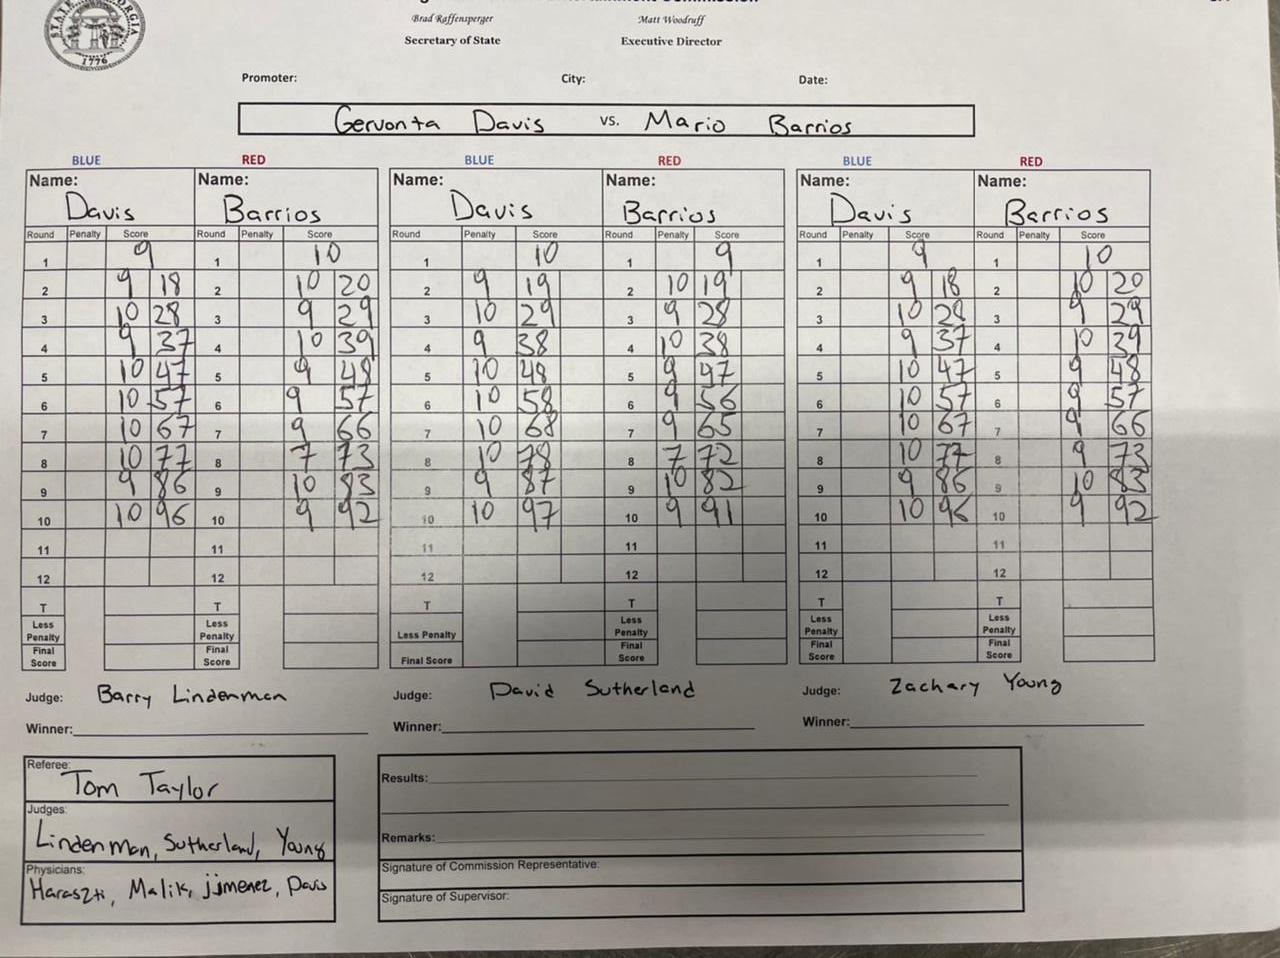 STATE GEORGIA
1776
Brad Raffensperger Matt Woodruff
Secretary of State Executive Director
Promoter: City: Date:
Gervonta Davis vs. Mario Barrios
BLUE RED BLUE RED BLUE RED
Name: Name: Name: Name: Name: Name:
Davis Barrios Davis Barrios Davis Barrios
Round Penalty Score Round Penalty Score Round Penalty Score Round Penalty Score Round Penalty Score Round Penalty Score
1 9 1 10 1 10 1 9 1 9 1 10
2 9 18 2 10 20 2 9 19 2 10 19 2 9 18 2 10 20
3 10 28 3 9 29 3 10 29 3 9 28 3 10 28 3 9 29
4 9 37 4 10 39 4 9 38 4 10 38 4 9 37 4 10 39
5 10 47 5 9 48 5 10 48 5 9 47 5 10 47 5 9 48
6 10 57 6 9 57 6 10 58 6 9 56 6 10 57 6 9 57
7 10 67 7 9 66 7 10 68 7 9 65 7 10 67 7 9 66
8 10 77 8 7 73 8 10 78 8 7 72 8 10 77 8 73
9 9 86 9 10 83 9 9 87 9 10 82 9 9 86 9 10 83
10 10 96 10 9 92 10 10 97 10 9 91 10 10 96 10 9 92
11 11 11 11 11 11
12 12 12 12 12 12
T T T T T T
Less Penalty Less Penalty Less Penalty Less Penalty Less Penalty Less Penalty
Final Score Final Score Final Score Final Score Final Score Final Score
Judge: Barry Lindenman Judge: David Sutherland Judge: Zachary Young
Winner: Winner: Winner:
Referee:
Tom Taylor
Judges:
Lindenman, Sutherland, Young
Physicians:
Haraszti, Malik, jimenez, Davis
Results:
Remarks:
Signature of Commission Representative:
Signature of Supervisor: